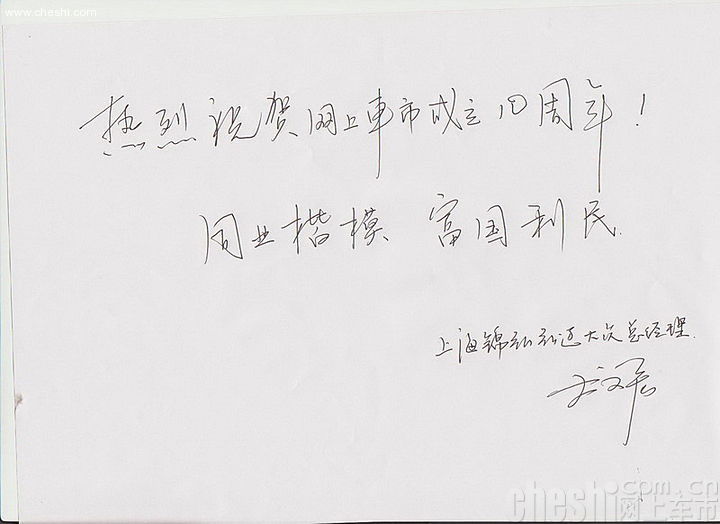 www.cheshi.com
热烈祝贺网上車市成立10周年!
同业楷模 富国利民.
上海锦 大众总经理.
cheshi.com.cn
网上车市